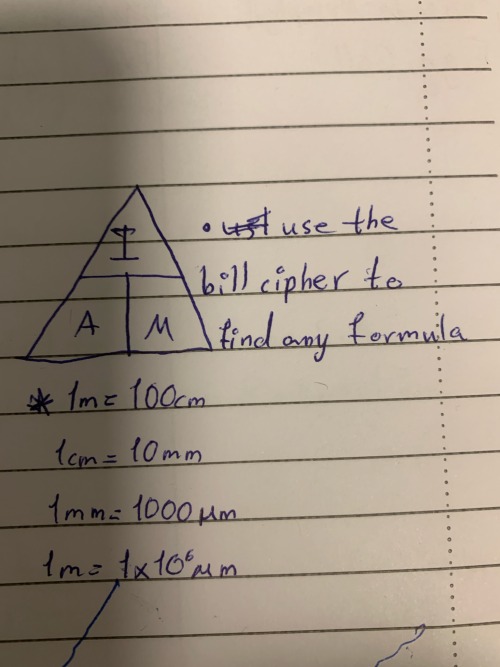 I
A M
• use the
bill cipher to
find any formula
* 1m = 100cm
1cm = 10mm
1mm = 1000 μm
1m = 1x10⁶ μm